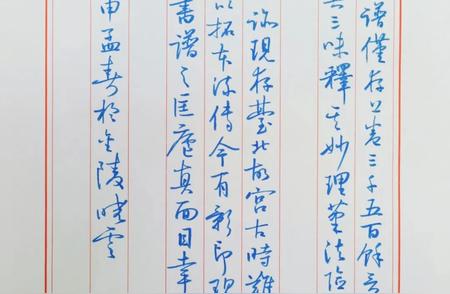 譜僅存上卷三千五百餘言
三味釋其妙理筆法
跡現存臺北故宮古時難
以拓本流傳今有影印現
書譜之匡廬真面目幸
申孟春於金陵曉雲